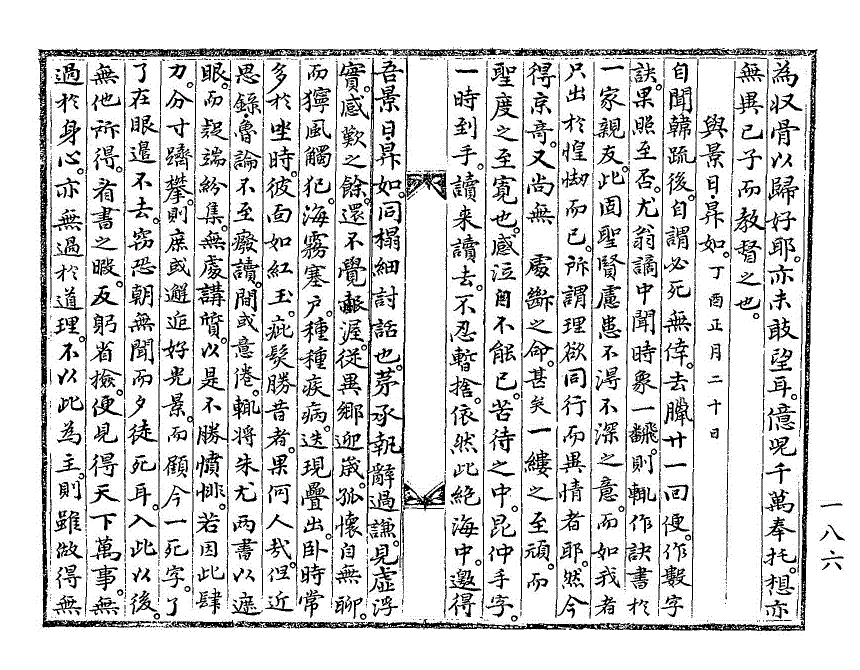 為収骨以歸好耶。亦未敢望耳。億兒千萬奉托。想亦
無異己子而教督之也。
與景日昇如。丁酉正月二十日
自聞韓疏後。自謂必死無倖。去臘廿一回便。作數字
訣。果照至否。尤翁謫中聞時象一飜。則輒作訣書於
一家親友。此固聖賢慮患不得不深之意。而如我者
只出於惶㤼而已。所謂理欲同行而異情者耶。然今
得京奇。又尚無 處斷之命。甚矣一縷之至頑。而
聖度之至寛也。感泣自不能已。苦待之中。昆仲手字。
一時到手。讀来讀去。不忍暫捨。依然此絶海中。邀得
吾景日昇如。同榻細討話也。苐承執辭過謙。見虛浮
實。感歎之餘。還不覺赧渥。従異郷迎歲。孤懷自無聊。
而獰風觸犯。海霧塞戶。種種疾病。迭現疊出。卧時常
多於坐時。彼面如紅玉。疵髮勝昔者。果何人㢤。但近
思錄魯論不至癈讀。間或意倦。輒將朱尤兩書以遮
眼。而疑端紛集。無處講質。以是不勝憤悱。若因此肆
力。分寸躋攀。則庶或邂逅好光景。而顧今一死字。了
了在眼邊不去。窃恐朝無聞而夕徒死耳。入此以後。
無他所得。看書之暇。反躬省撿。便見得天下萬事。無
過於身心。亦無過於道理。不以此為主。則雖做得無
一八六